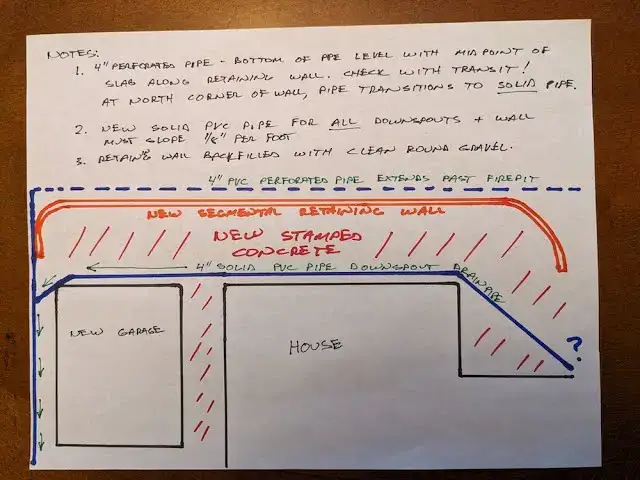 NOTES:
1. 4" PERFORATED PIPE - BOTTOM OF PIPE LEVEL WITH MIDPOINT OF
SLAB ALONG RETAINING WALL. CHECK WITH TRANSIT!
AT NORTH CORNER OF WALL, PIPE TRANSITIONS TO SOLID PIPE.
2. NEW SOLID PVC PIPE FOR ALL DOWNSPOUTS + WALL
MUST SLOPE 1/8" PER FOOT
3. RETAING WALL BACKFILLED WITH CLEAN ROUND GRAVEL.
4" PVC PERFORATED PIPE EXTENDS PAST FIREPIT
NEW SEGMENTAL RETAINING WALL
NEW STAMPED
CONCRETE
4" SOLID PVC PIPE DOWNSPOUT DRAINPIPE
NEW GARAGE
HOUSE
?